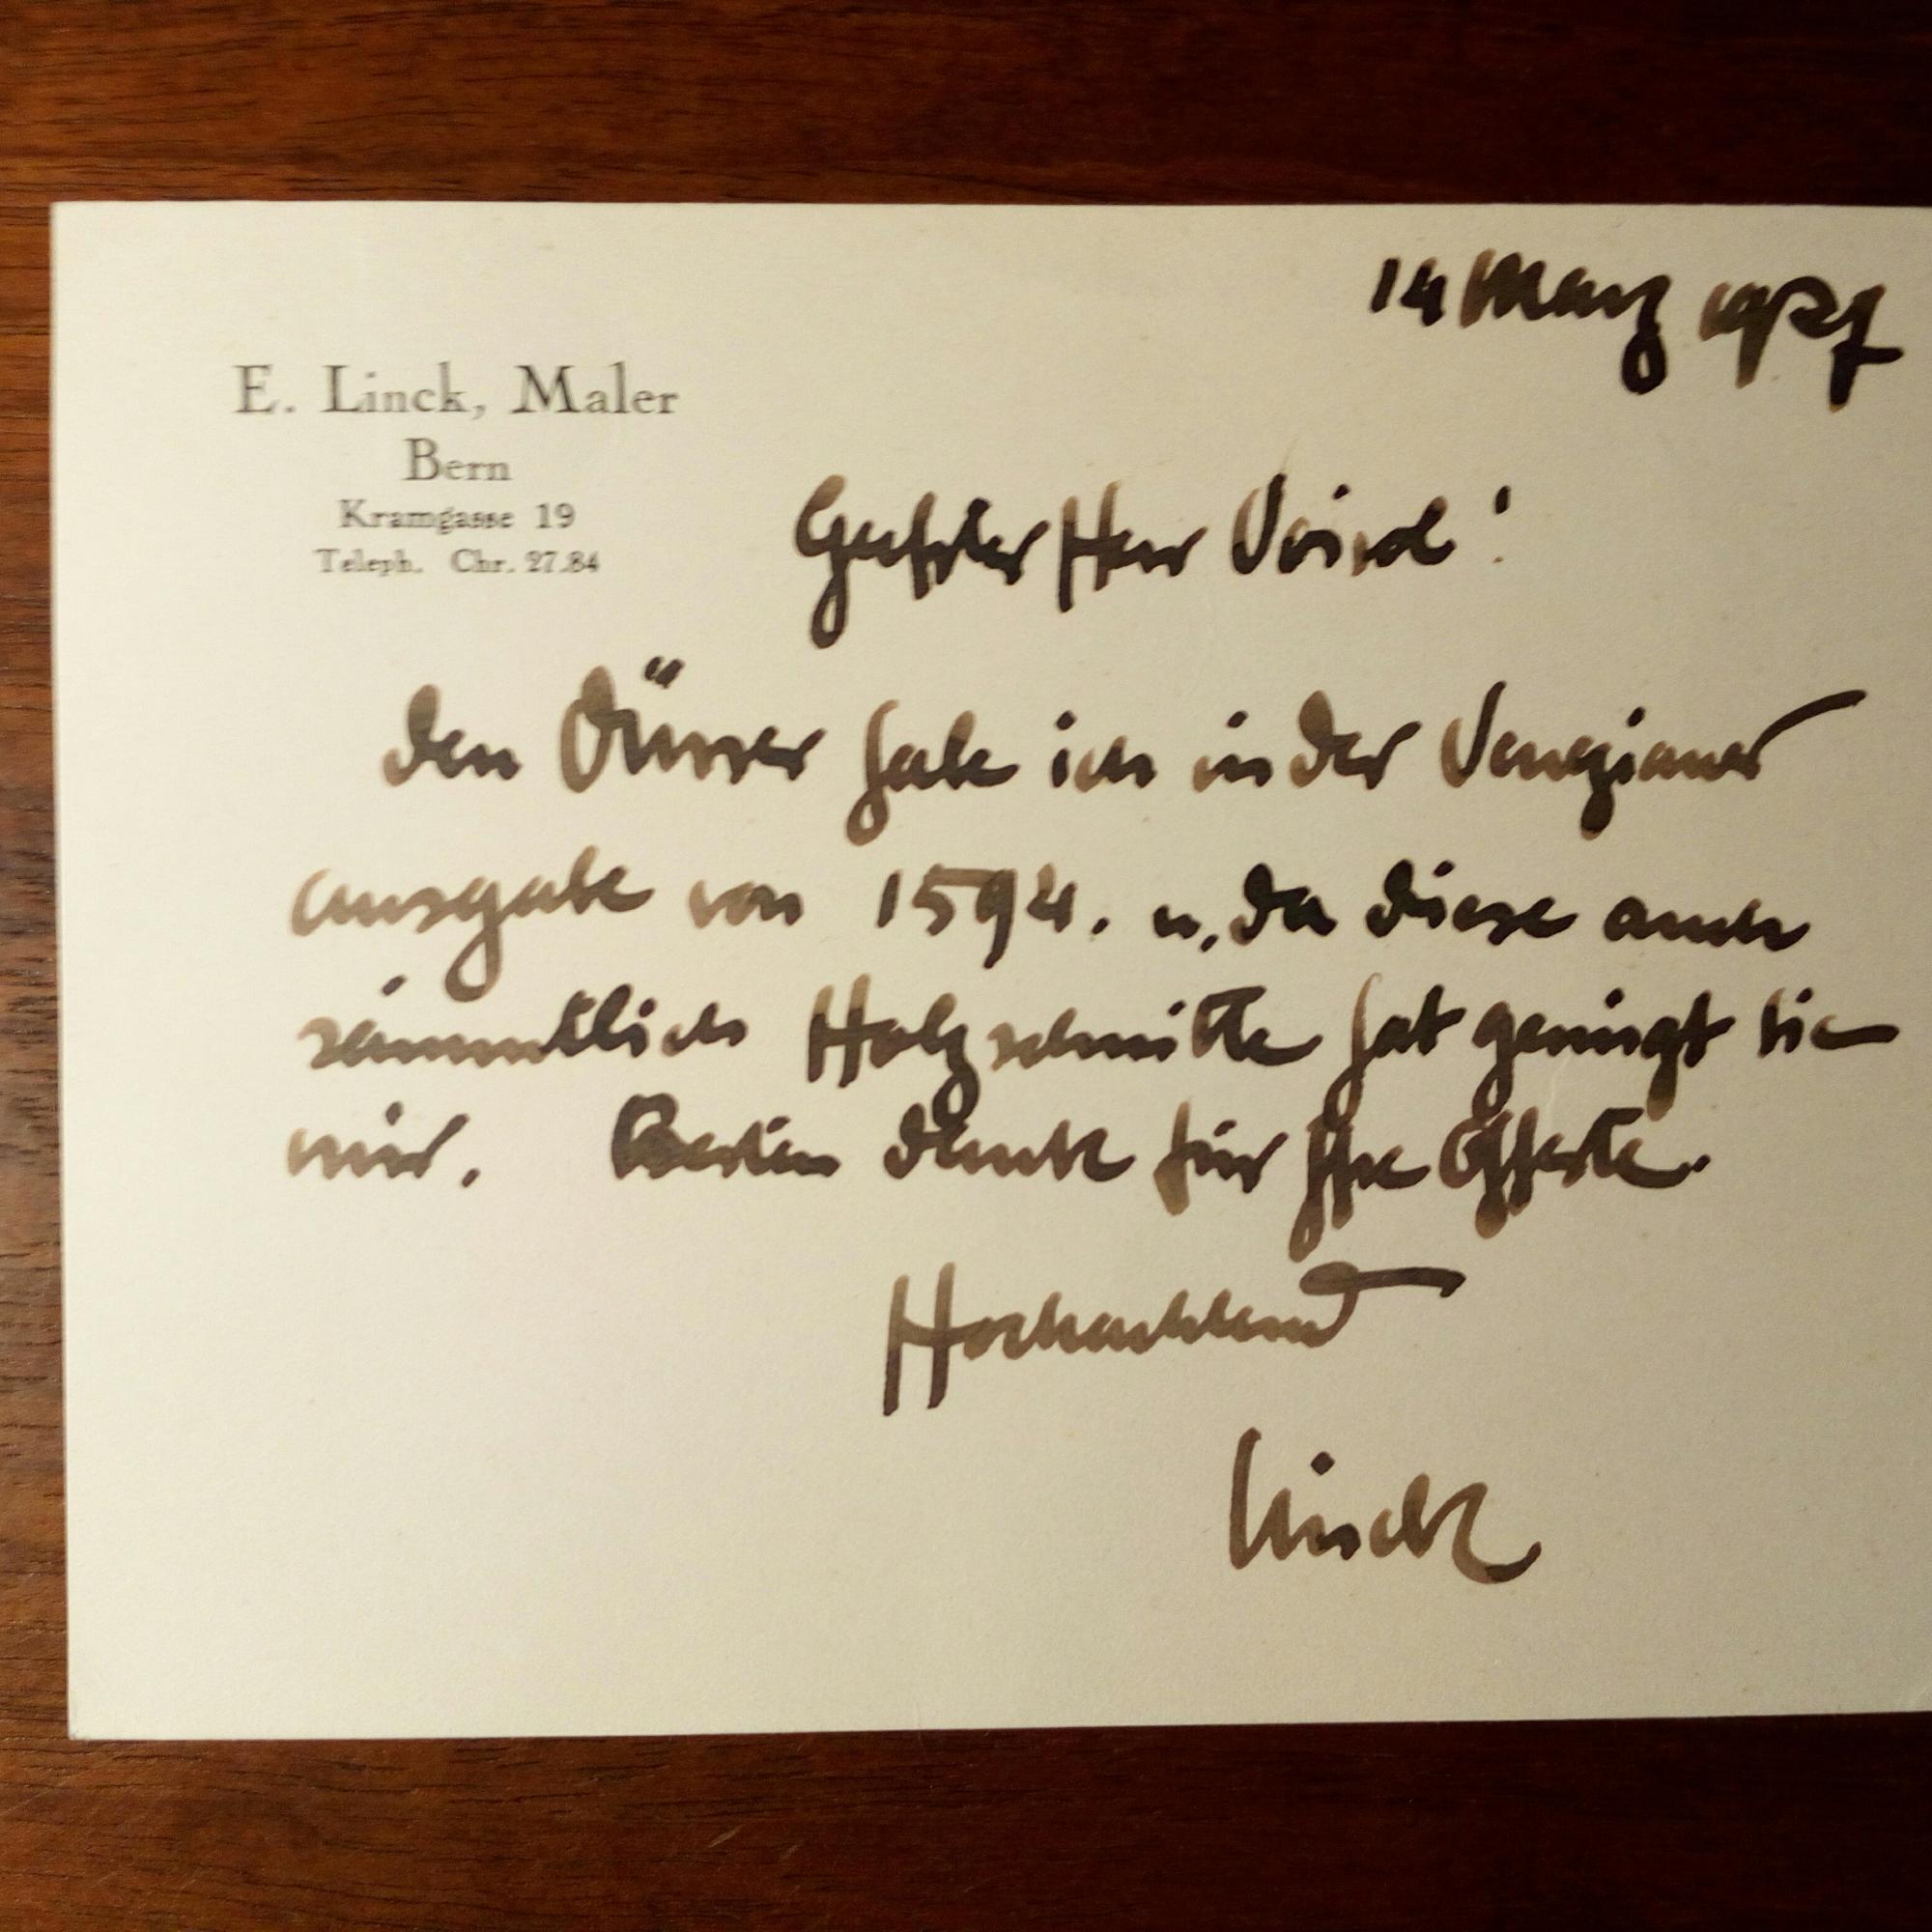 14 März 1927
E. Linck, Maler
Bern
Kramgasse 19
Teleph. Chr. 27.84
Geehrter Herr !
den Dürrer habe ich in der Venezianer
Ausgabe von 1594. u. da diese auch
sämmtlich Holzschnitte hat genügt sie
mir. Besten Dank für Ihre Offerte.
Hochachtend
Linck